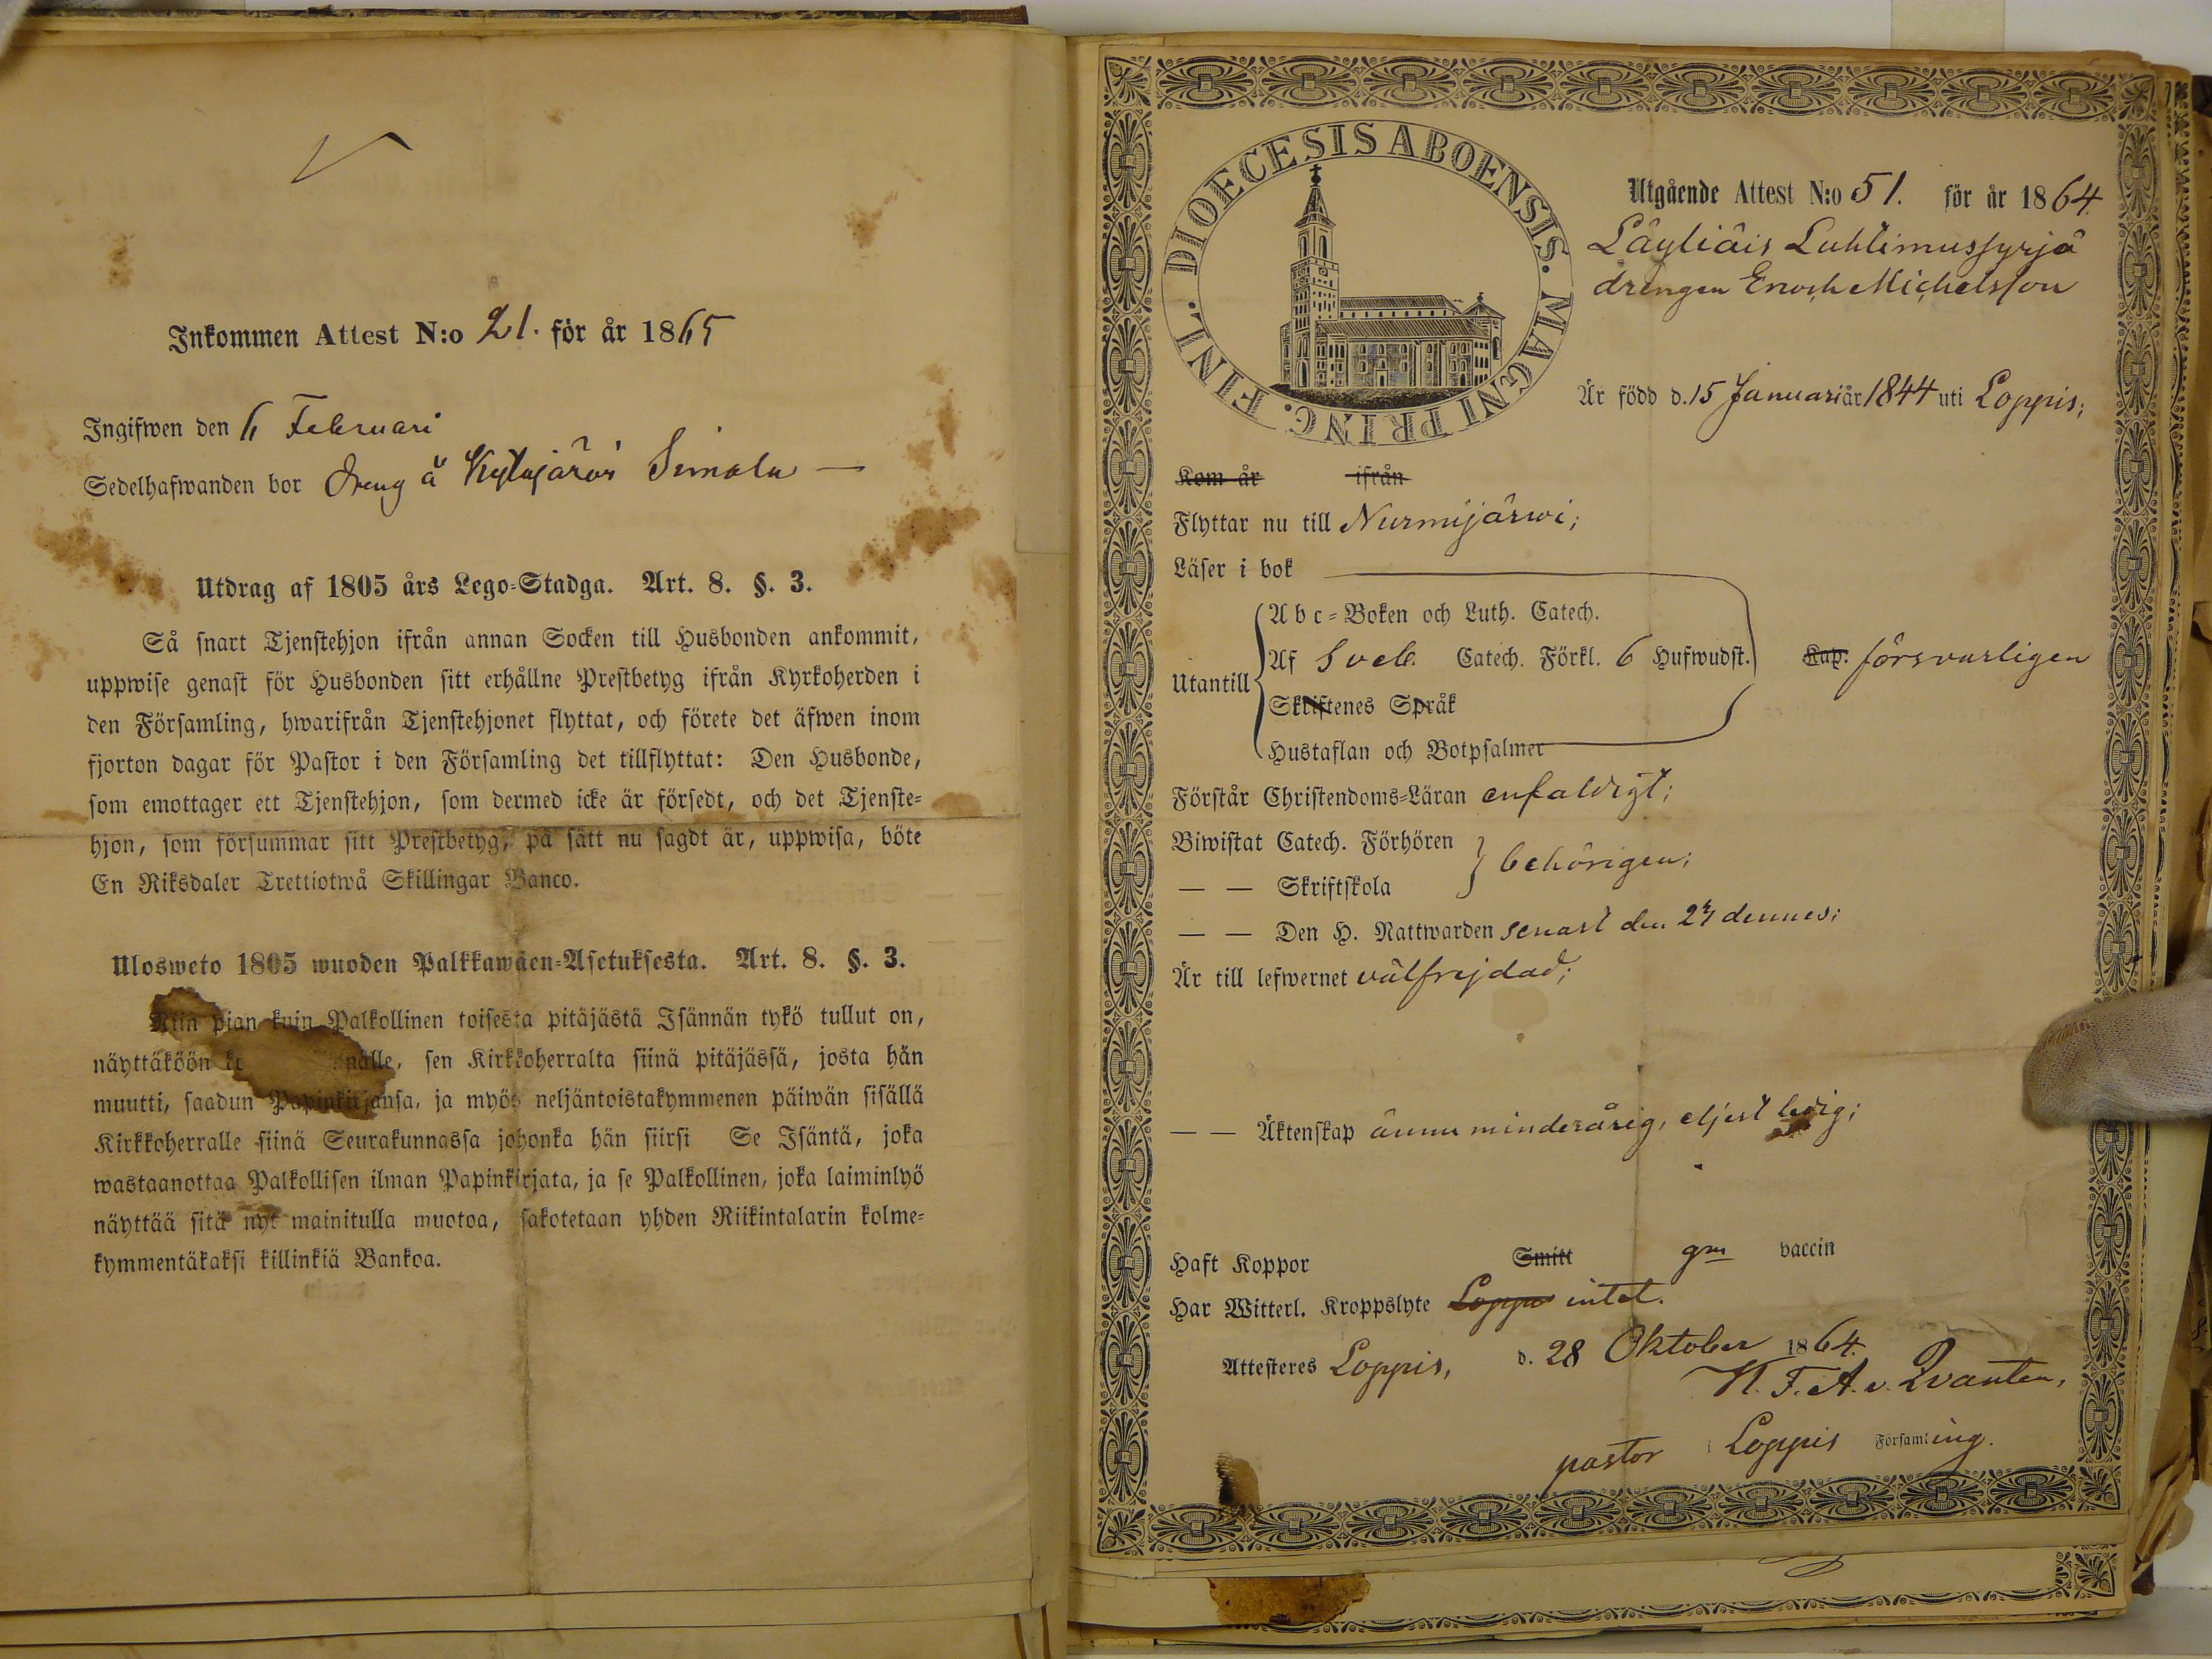 Inkommen Attest N:o 21. för år 1865
Ingifwen den 6 Februari
Sedelhafwanden bor Dreng å Kytäjärvi Simola —
Utdrag af 1805 års Lego-Stadga. Art. 8. §. 3.
Så snart Tjenstehjon ifrån annan Socken till Husbonden ankommit,
uppwise genast för Husbonden sitt erhållne Prestbetyg ifrån Kyrkoherden i
den Församling, hwarifrån Tjenstehjonet flyttat, och förete det äfwen inom
fjorton dagar för Pastor i den Församling det tillflyttat: Den Husbonde,
som emottager ett Tjenstehjon, som dermed icke är försedt, och det Tjenste-
hjon, som försummar sitt Prestbetyg, på sätt nu sagdt är, uppwisa, böte
En Riksdaler Trettiotwå Skillingar Banco.
Ulosweto 1805 wuoden Palkkawäen-Asetuksesta. Art. 8. §. 3.
Niin pian kuin Palkollinen toisesta pitäjästä Isännän tykö tullut on,
näyttäköön sen Kirkkoherralta siinä pitäjässä, josta hän
muutti, saadun Papinkirjansa, ja myös neljäntoistakymmenen päiwän sisällä
Kirkkoherralle siinä Seurakunnassa johonka hän siirsi Se Isäntä, joka
wastaanottaa Palkollisen ilman Papinkirjata, ja se Palkollinen, joka laiminlyö
näyttää sitä nyt mainitulla muotoa, sakotetaan yhden Riikintalarin kolme-
kymmentäkaksi killinkiä Bankoa.
DIOECESIS ABOENSIS. MAGNI PRINC. FINL.
Utgående Attest N:o 51. för år 1864.
Läyliäis Luhtimussyrjä
drengen Enoch Michelsson
Är född d. 15 Januari år 1844 uti Loppis;
Kom år ifrån
Flyttar nu till Nurmijärwi;
Läser i bok
Abc-Boken och Luth. Catech.
Af Sveb. Catech. Förkl. 6 Hufwudst. Kap. försvarligen
Utantill
Skriftenes Språk
Hustaflan och Botpsalmer
Förstår Christendoms-Läran enfaldigt;
Biwistat Catech. Förhören
behörigen;
— — Skriftskola
— — Den H. Nattwarden senast den dennes;
Är till lefwernet välfrejdad;
— — Äktenskap ännu minderårig, eljest ledig;
Haft Koppor Smitt gm vaccin
Har Witterl. Kroppslyte intet.
Attesteres Loppis, d. 28 Oktober 1864.
N. F. A. v. Qvanten,
pastor i Loppis Församling.